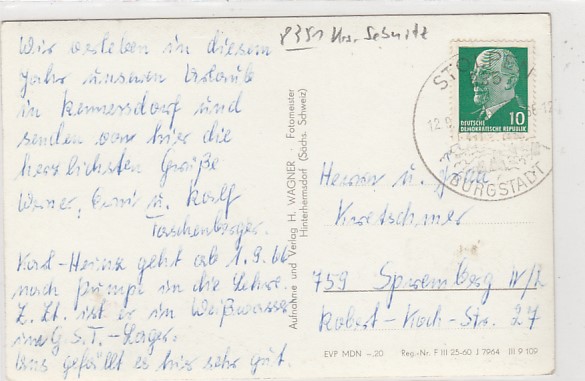 8351 Krs. Sebnitz
Wir verleben in diesem
Jahr unseren Urlaub
in Rennersdorf und
senden von hier die
herzlichsten Grüße
Werner, Erni u. Rolf
Taschenberger.
Karl-Heinz geht ab 1.9.66
nach Pumpe in die Lehre.
Z. Zt. ist er in Weißwasser
im G.S.T.-Lager.
Uns gefällt es hier sehr gut.
Aufnahme und Verlag H. WAGNER Fotomeister
Hinterhermsdorf (Sächs. Schweiz)
STOLPEN
12
BURGSTADT
10
DEUTSCHE
DEMOKRATISCHE REPUBLIK
Herrn u. Frau
Kretschmer
759 Spremberg N/L
Robert-Koch-Str. 27
EVP MDN -.20 Reg.-Nr. F III 25-60 J 7964 III 9 109